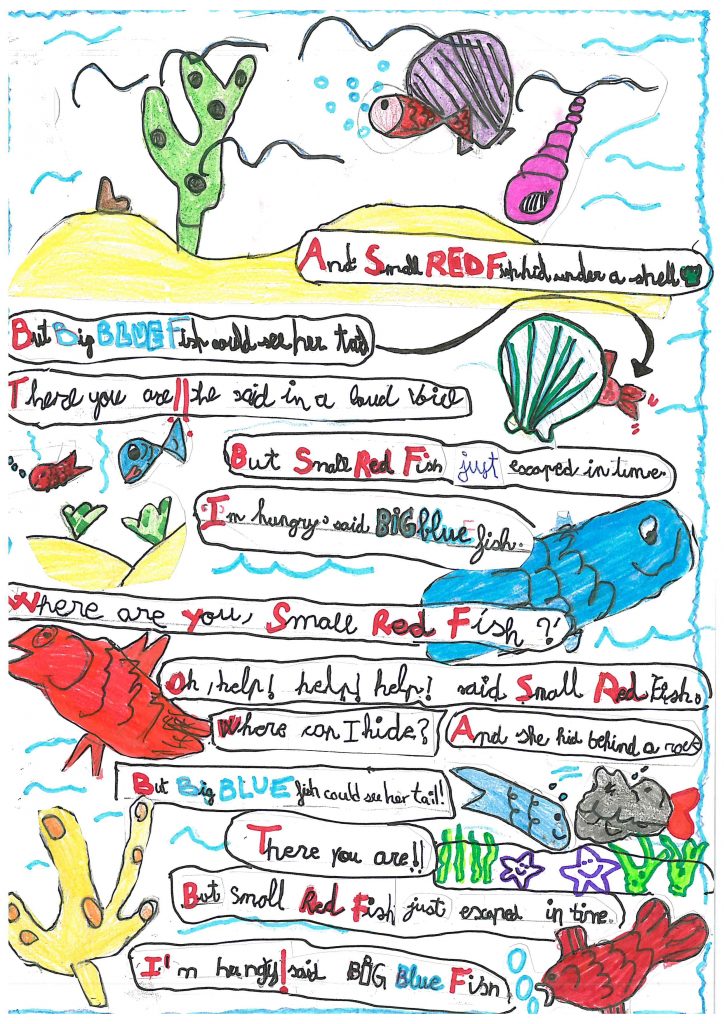 And Small RED Fish hid under a shell
But Big BLUE Fish could see her tail
There you are!! he said in a loud voice
But Small Red Fish just escaped in time.
I'm hungry, said BIG blue fish.
Where are you, Small Red Fish?'
Oh, help! help! help! said Small Red Fish.
Where can I hide? And she hid behind a rock
But Big BLUE fish could see her tail!
There you are!!
But Small Red Fish just escaped in time.
I'm hungry! said BIG Blue Fish